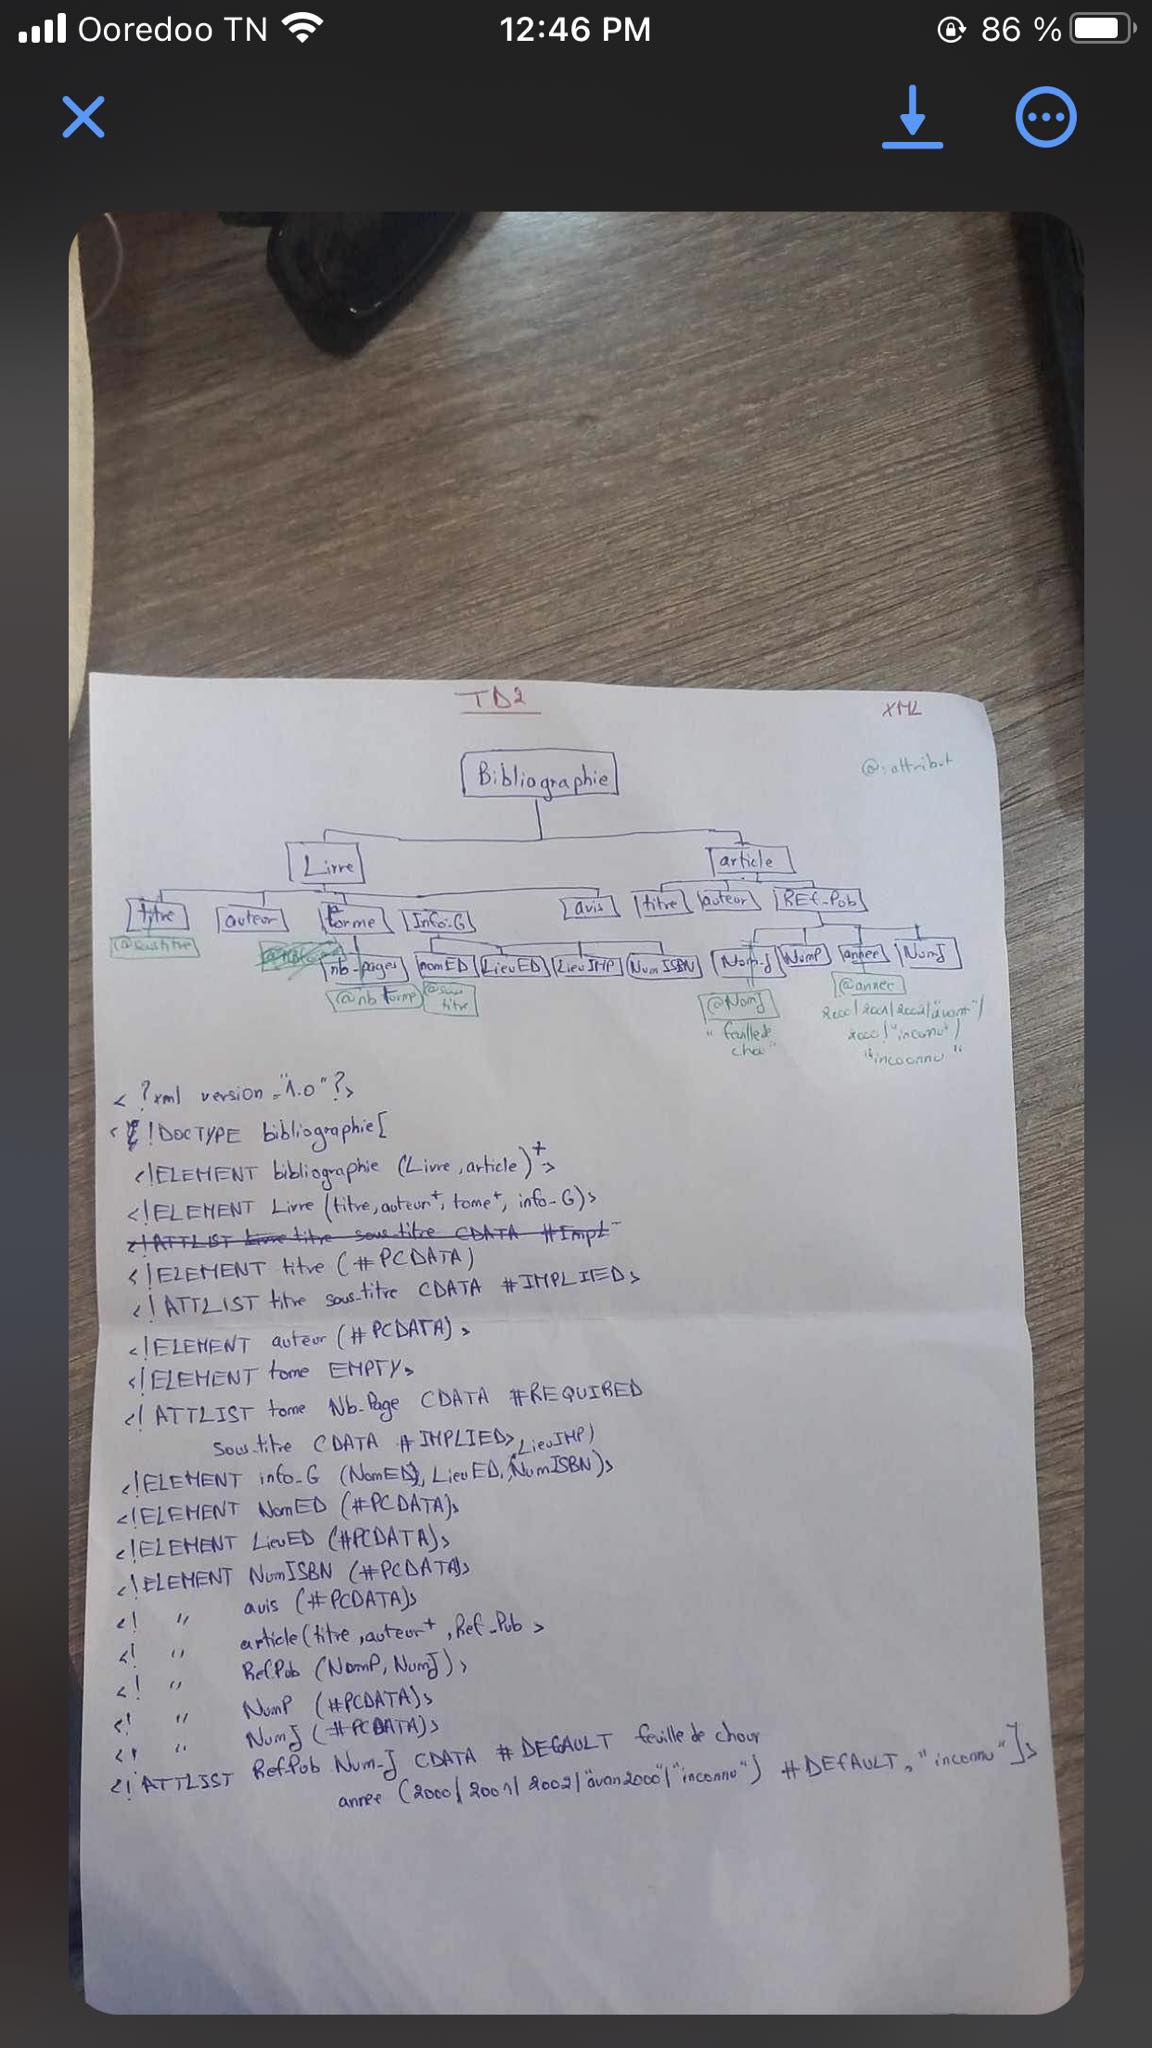 Ooredoo TN 12:46 PM 86 %
TD2
XML
@: attribut
Bibliographie
Livre article
titre auteur tome Info-G avis titre auteur REf-Pub
@soustitre
nb-pages nomED LieuED LieuIMP NumISBN Nom-J NumP annee NumJ
@nb tome @sous titre @NomJ @annee
"feuille de chou" 2000/2001/2002/"avant"/
2000/"inconnu"/
"incoonnu"
<?xml version="1.0"?>
<!DOCTYPE bibliographie[
<!ELEMENT bibliographie (Livre,article)+>
<!ELEMENT Livre (titre,auteur+,tome+, info-G)>
<!ATTLIST Livre titre sous-titre CDATA #Impl
<!ELEMENT titre (#PCDATA)
<!ATTLIST titre sous-titre CDATA #IMPLIED>
<!ELEMENT auteur (#PCDATA)>
<!ELEMENT tome EMPTY>
<!ATTLIST tome Nb-Page CDATA #REQUIRED
Sous-titre CDATA #IMPLIED>
<!ELEMENT info-G (NomED, LieuED, NumISBN)> , LieuIMP)
<!ELEMENT NomED (#PCDATA)>
<!ELEMENT LieuED (#PCDATA)>
<!ELEMENT NumISBN (#PCDATA)>
<! " avis (#PCDATA)>
<! " article (titre,auteur+,Ref-Pub >
<! " Ref.Pub (NomP, NumJ)>
<! " NumP (#PCDATA)>
<! " NumJ (#PCDATA)>
<!ATTLIST Ref-Pub Num-J CDATA #DEFAULT feuille de chour
annee (2000/ 2001/ 2002/"avan2000"/"inconnu") #DEFAULT, "inconnu"]>